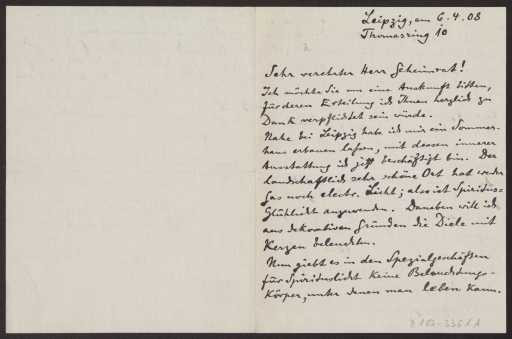 Leipzig, am 6.4.08
Thomasring 10
Sehr verehrter Herr Geheimrat!
Ich möchte Sie um eine Auskunft bitten,
für deren Erteilung ich Ihnen herzlich zu
Dank verpflichtet sein würde.
Nahe bei Leipzig habe ich mir ein Sommer-
haus erbauen lassen, mit dessen innerer
Ausstattung ich jetzt beschäftigt bin. Der
landschaftlich sehr schöne Ort hat weder
Gas noch electr. Licht; also ist Spiritus-
Glühlicht anzuwenden. Daneben will ich
aus dekorativen Gründen die Diele mit
Kerzen beleuchten.
Nun giebt es in den Spezialgeschäften
für Spirituslicht keine Beleuchtungs-
körper, unter denen man leben kann.